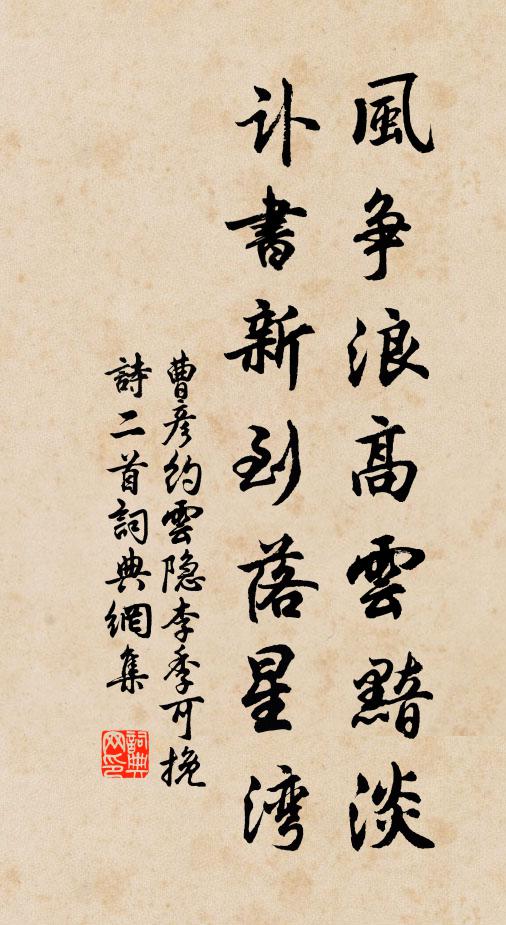 風争浪高雲黯淡
讣書新到落星湾
曹彦约雲隐李季可挽
詩二首詞典網集
詞典
网印